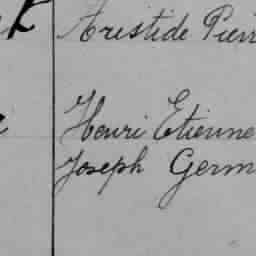 Aristide Pierr
Henri Etienne
Joseph Germ